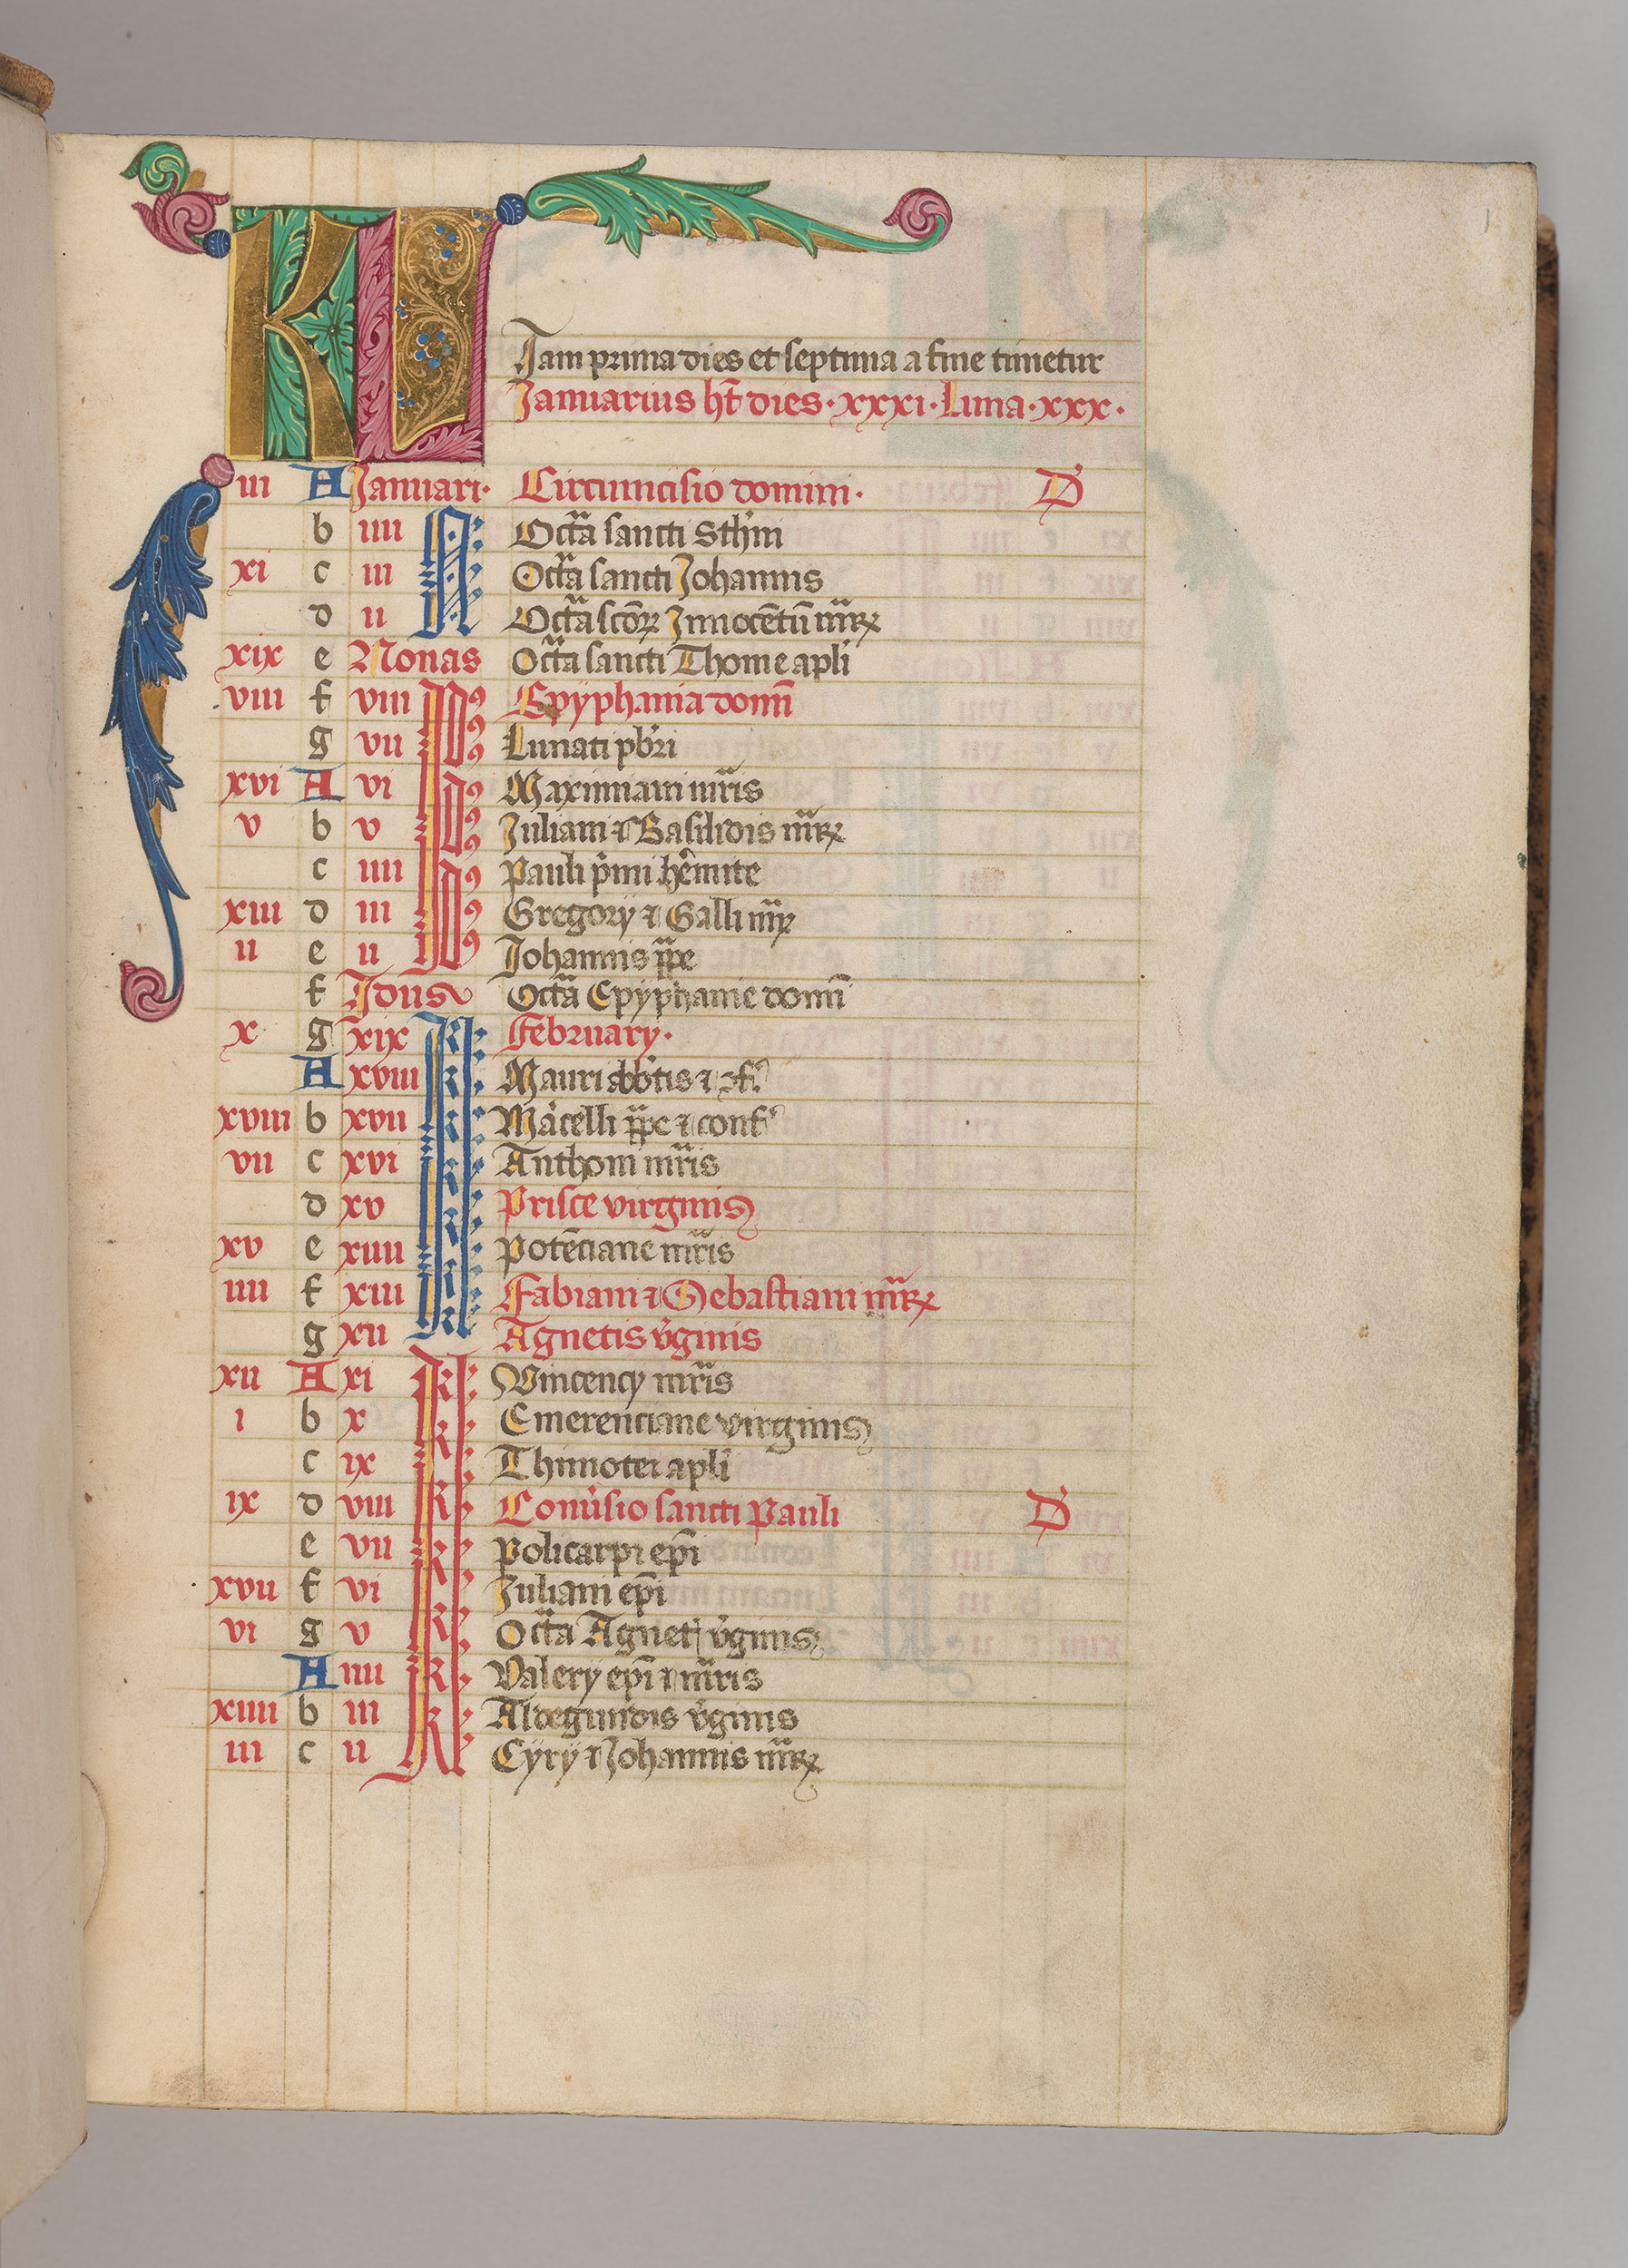 KL
Jam prima dies et septima a fine timetur
Januarius ht̄ dies · xxxi · Luna · xxx ·
iii A Januari · Circumcisio domini · D
b iiii N Octā sancti Sthm
xi c iii Octā sancti Johannis
d ii Octā scōꝝ Innocētū mrꝝ
xix e Nonas Octā sancti Thome apli
viii f viii Idꝰ Epyphania domī
g vii Idꝰ Luciani pbri
xvi A vi Idꝰ Maximiani mris
v b v Idꝰ Juliani ⁊ Basilidis mrꝝ
c iiii Idꝰ Pauli pimi hēmite
xiii d iii Idꝰ Gregorij ⁊ Galli mꝝ
ii e ii Idꝰ Johannis ppe
f Idus Octā Epyphanie domī
x g xix kl February ·
A xviii kl Mauri abbtis ⁊ ꝯf
xviii b xvii kl Macelli ppe ⁊ conf
vii c xvi kl Anthoni mris
d xv kl Prisce virginis
xv e xiiii kl Potēciane mris
iiii f xiii kl Fabiani ⁊ Sebastiani mrꝝ
g xii kl Agnetis vginis
xii A xi kl Vincency mris
i b x kl Emerenciane virginis
c ix kl Thimotei apli
ix d viii kl Conusio sancti Pauli D
e vii kl Policarpi epī
xvii f vi kl Juliani epī
vi g v kl Octā Agnet vginis
A iiii kl Valery epī ⁊ mris
xiiii b iii kl Aldegundis vginis
iii c ii kl Cyry ⁊ Johannis mrꝝ